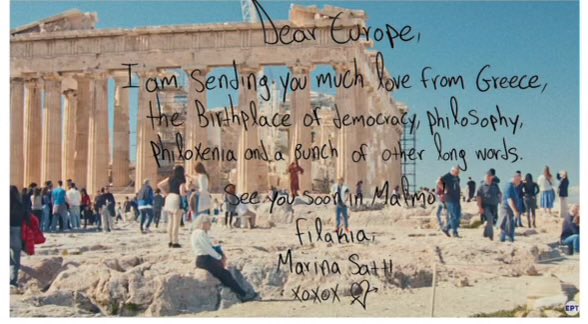 Dear Europe,
I am sending you much love from Greece,
the Birthplace of democracy, philosophy,
philoxenia and a bunch of other long words.
See you soon in Malmo
filakia,
Marina Satti
xoxox
ΕΡΤ